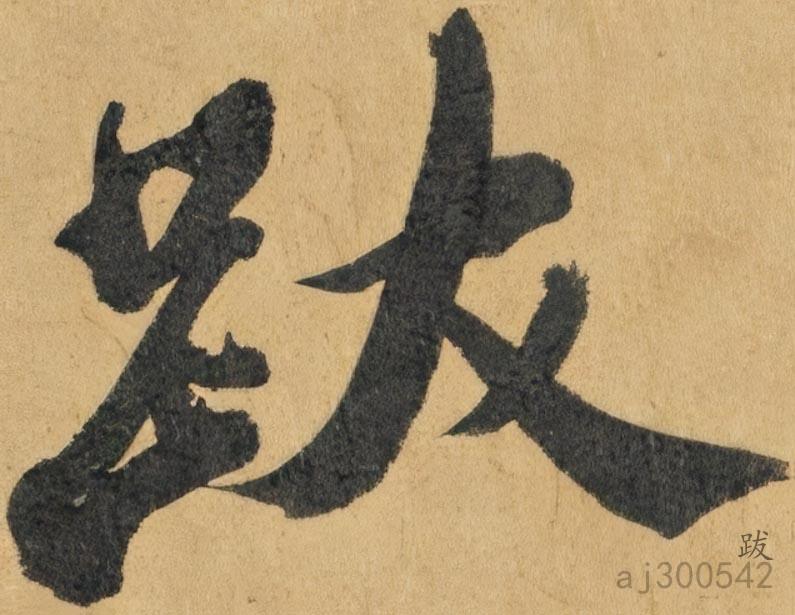 跋
跋
aj300542